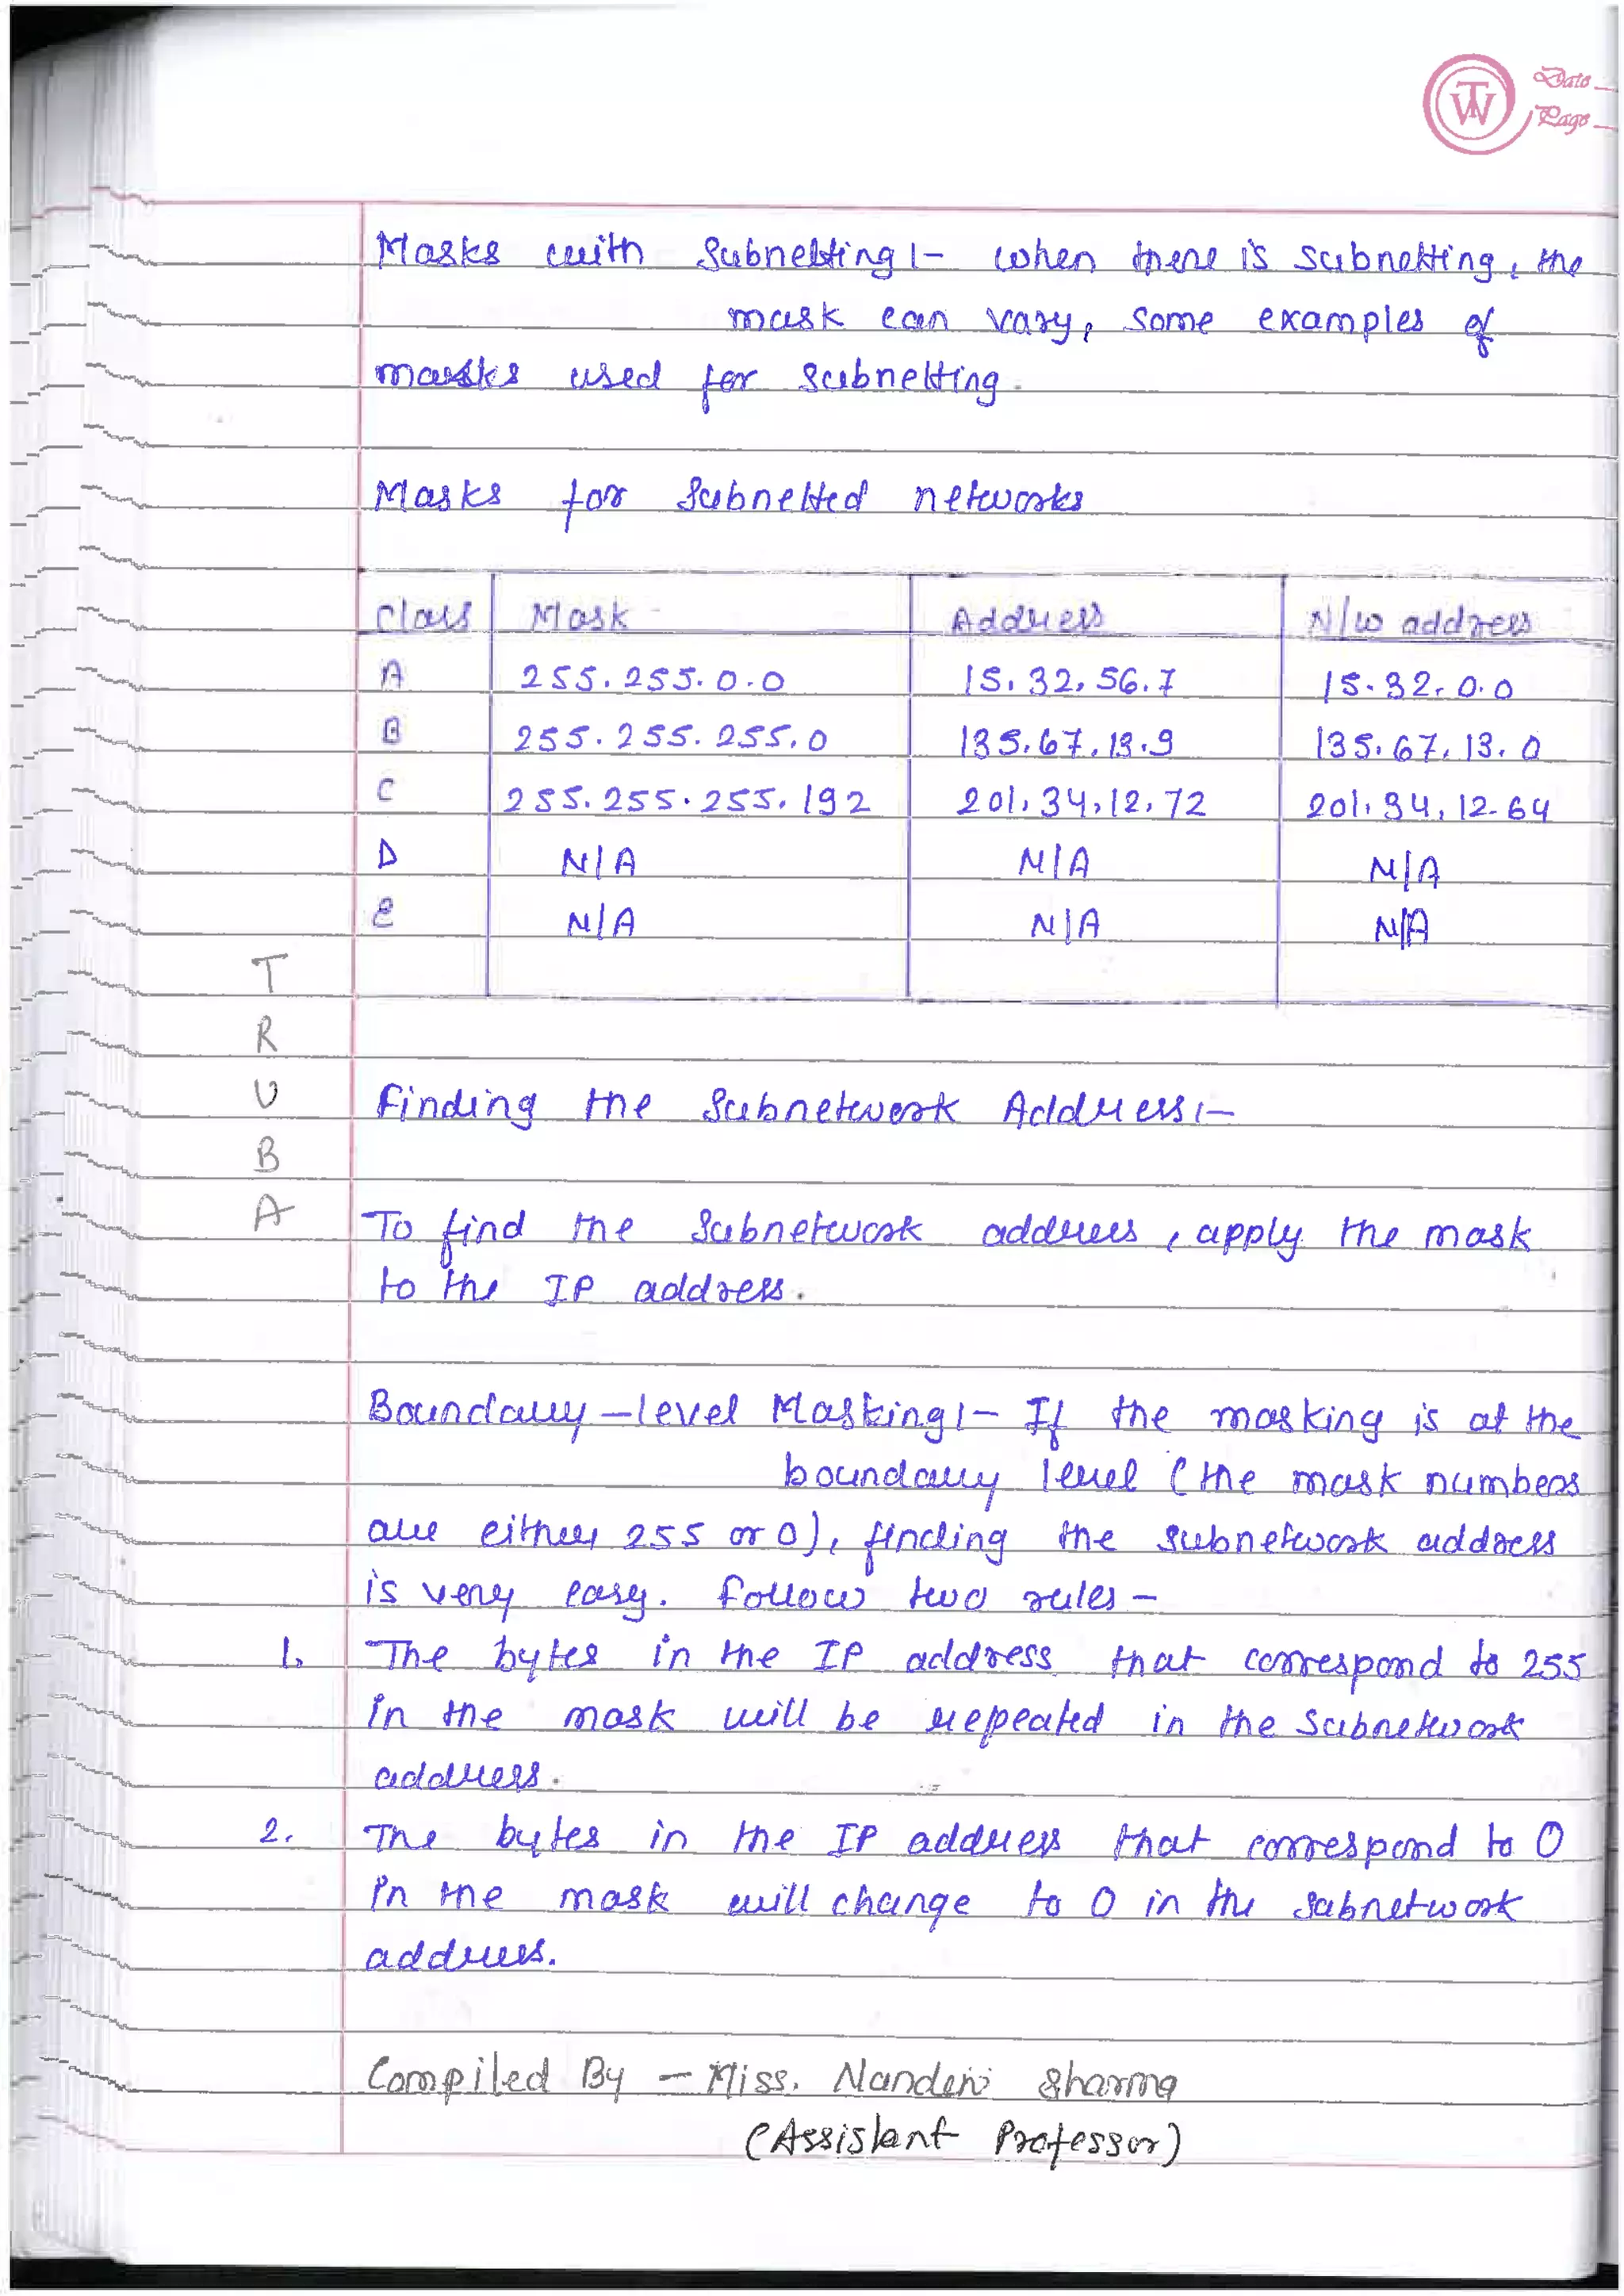 TW
Date
Page
Masks with Subnetting :- when there is subnetting, the
mask can vary, some examples of
masks used for subnetting.
Masks for Subnetted networks
Class | Mask | Address | N/w address
A | 255.255.0.0 | 15.32.56.7 | 15.32.0.0
B | 255.255.255.0 | 135.67.13.9 | 135.67.13.0
C | 255.255.255.192 | 201.34.12.72 | 201.34.12.64
D | N/A | N/A | N/A
E | N/A | N/A | N/A
T
R
U
B
A
Finding the Subnetwork Address :-
To find the subnetwork address, apply the mask
to the IP address.
Boundary-level Masking :- If the masking is at the
boundary level (the mask numbers
are either 255 or 0), finding the subnetwork address
is very easy. Follow two rules -
1. The bytes in the IP address that correspond to 255
in the mask will be repeated in the Subnetwork
address.
2. The bytes in the IP address that correspond to 0
in the mask will change to 0 in the subnetwork
address.
Compiled By - Miss. Nandini Sharma
(Assistant Professor)